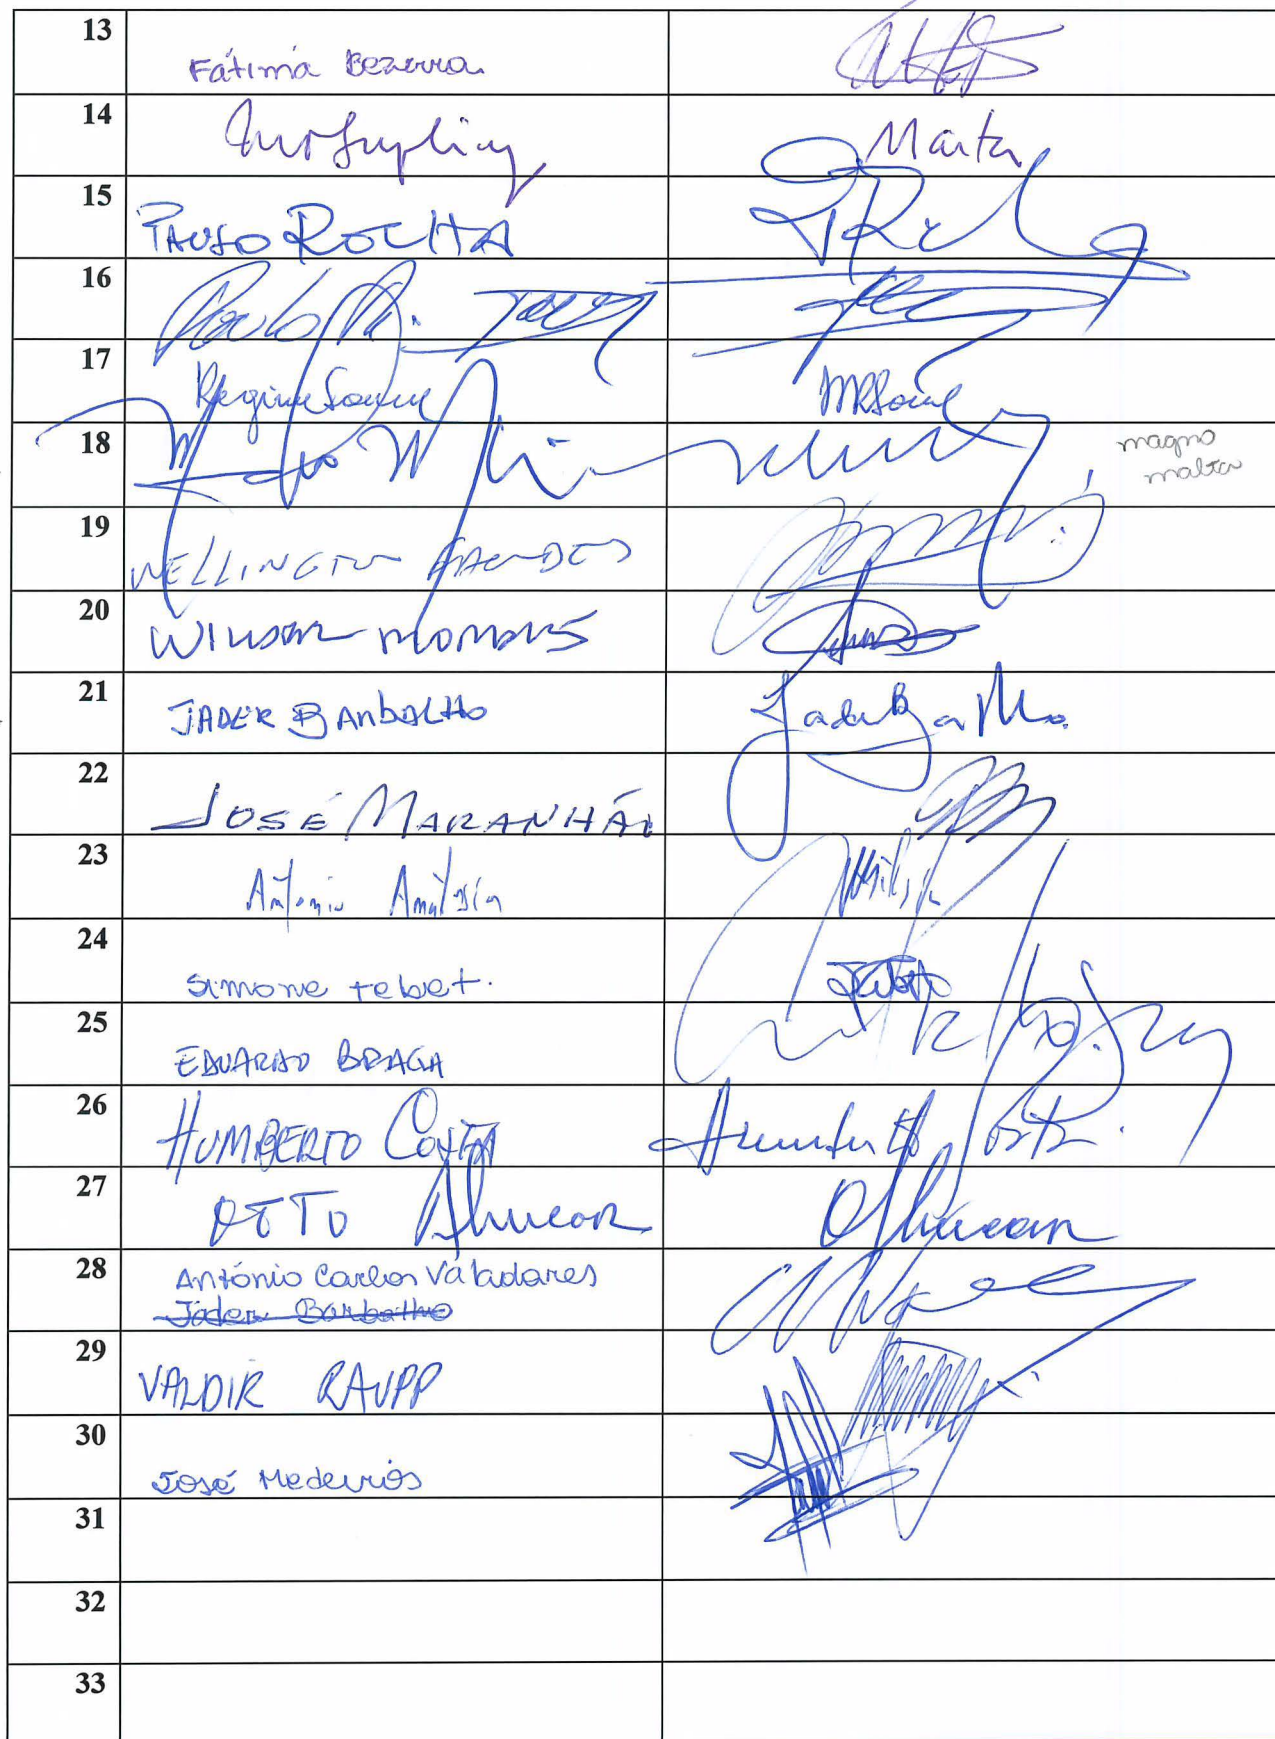 13 Fátima Bezerra
14 Marta
15 PAULO ROCHA
16 Paulo
17 Regina Sousa
18 magno
malta
19 WELLINGTON FAGUNDES
20 WILDER MORAIS
21 JADER BARBALHO Jader Barbalho
22 JOSÉ MARANHÃO
23 Antonio Anastasia
24 Simone tebet. Tebet
25 EDUARDO BRAGA
26 HUMBERTO COSTA Humberto Costa
27 OTTO Alencar OAlencar
28 Antônio Carlos Valadares
Jader Barbalho
29 VALDIR RAUPP
30 José Medeiros
31
32
33